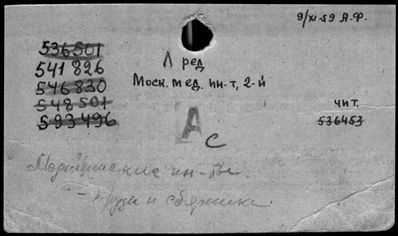 9/XI-59 А.Ф.
536501
541826
546830
548501
593496
Л ред
Моск. мед. ин-т, 2-й
чит.
536453
А с
Медицинские ин-ты
- Труды и сборники